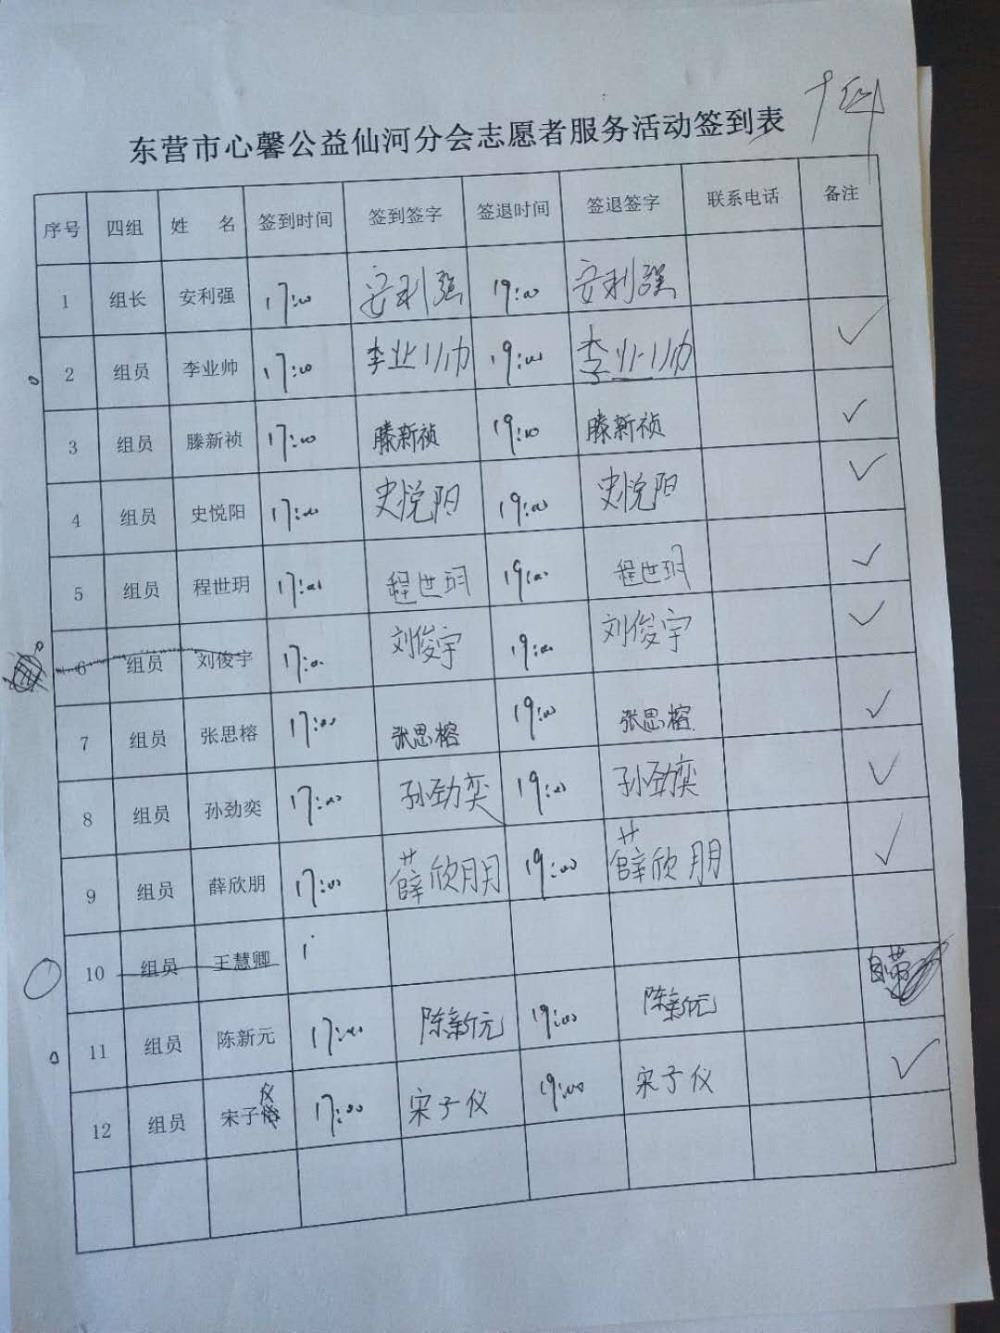 东营市心馨公益仙河分会志愿者服务活动签到表
序号 四组 姓 名 签到时间 签到签字 签退时间 签退签字 联系电话 备注
1 组长 安利强 17:00 安利强 19:00 安利强
2 组员 李业帅 17:00 李业帅 19:00 李业帅 ✓
3 组员 滕新祯 17:00 滕新祯 19:00 滕新祯 ✓
4 组员 史悦阳 17:00 史悦阳 19:00 史悦阳 ✓
5 组员 程世玥 17:00 程世玥 19:00 程世玥 ✓
6 组员 刘俊宇 17:00 刘俊宇 19:00 刘俊宇 ✓
7 组员 张思榕 17:00 张思榕 19:00 张思榕 ✓
8 组员 孙劲奕 17:00 孙劲奕 19:00 孙劲奕 ✓
9 组员 薛欣朋 17:00 薛欣朋 19:00 薛欣朋 ✓
10 组员 王慧卿
11 组员 陈新元 17:00 陈新元 19:00 陈新元
12 组员 宋子仪 17:00 宋子仪 19:00 宋子仪 ✓